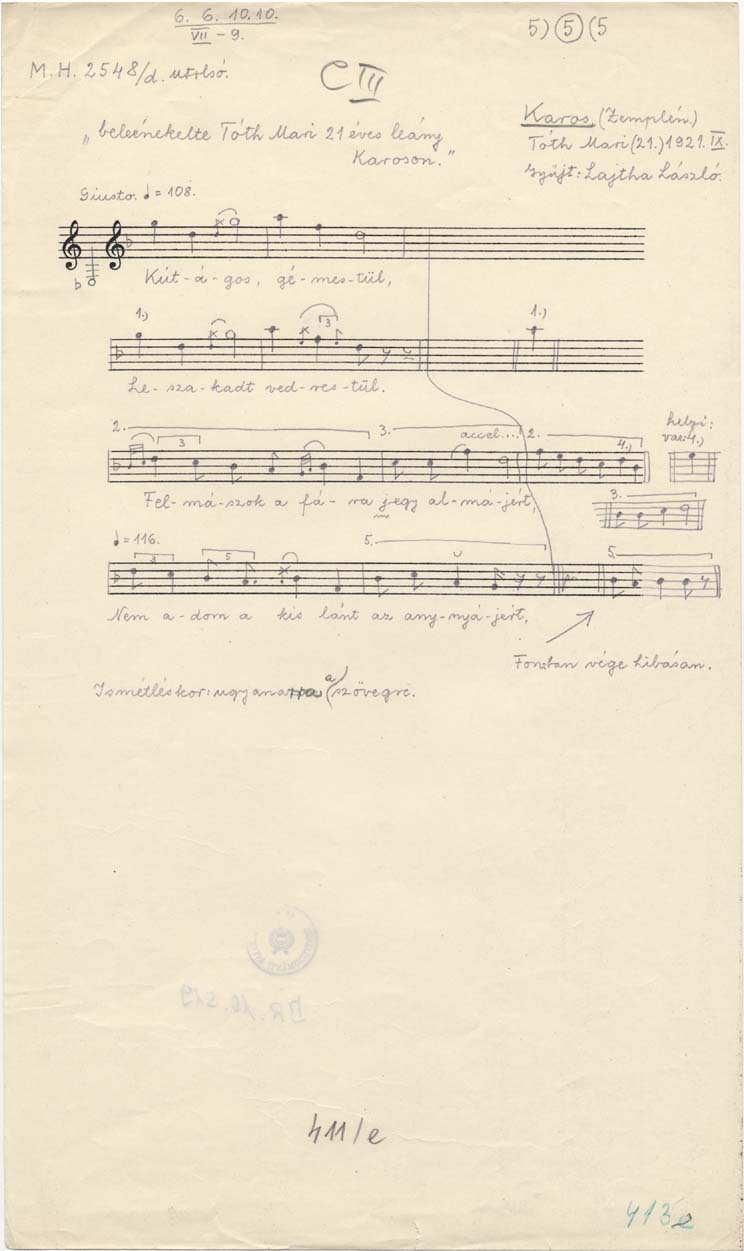 6. 6. 10. 10.
VII - 9.
5) 5 (5
M. H. 2548/d. utolsó.
C III
„beleénekelte Tóth Mari 21 éves leány
Karoson."
Karos, (Zemplén.)
Tóth Mari (21.) 1921. IX.
Gyűjt: Lajtha László.
Giusto. ♩= 108.
Kút-á-gos, gé-mes-tül,
1.) 3 1.)
Le-sza-kadt ved-res-tül.
2. 3 3. accel... 2. 4.)
helyi:
var: 4.)
Fel-má-szok a fá-ra jegy al-má-jért,
3.
♩= 116. 3 5 5. 5.
Nem a-dom a kis lánt az any-nyá-jért,
Fonban vége hibásan.
Ismétléskor: ugyana a szövegre.
BR. 10.519
411/e
413e